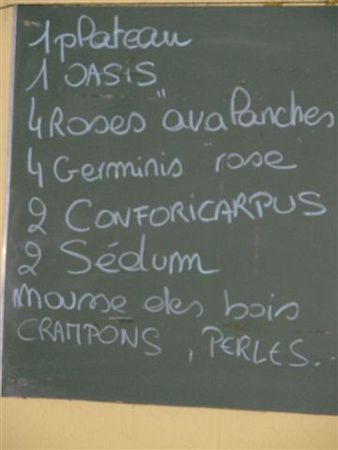 1 plateau
1 OASIS
4 Roses "avalanches
4 Germinis rose
2 CONFORICARPUS
2 Sédum
mousse des bois
CRAMPONS, PERLES...